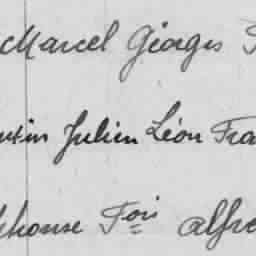 Marcel Georges
Julien Léon Fra
phonse Fois alfre